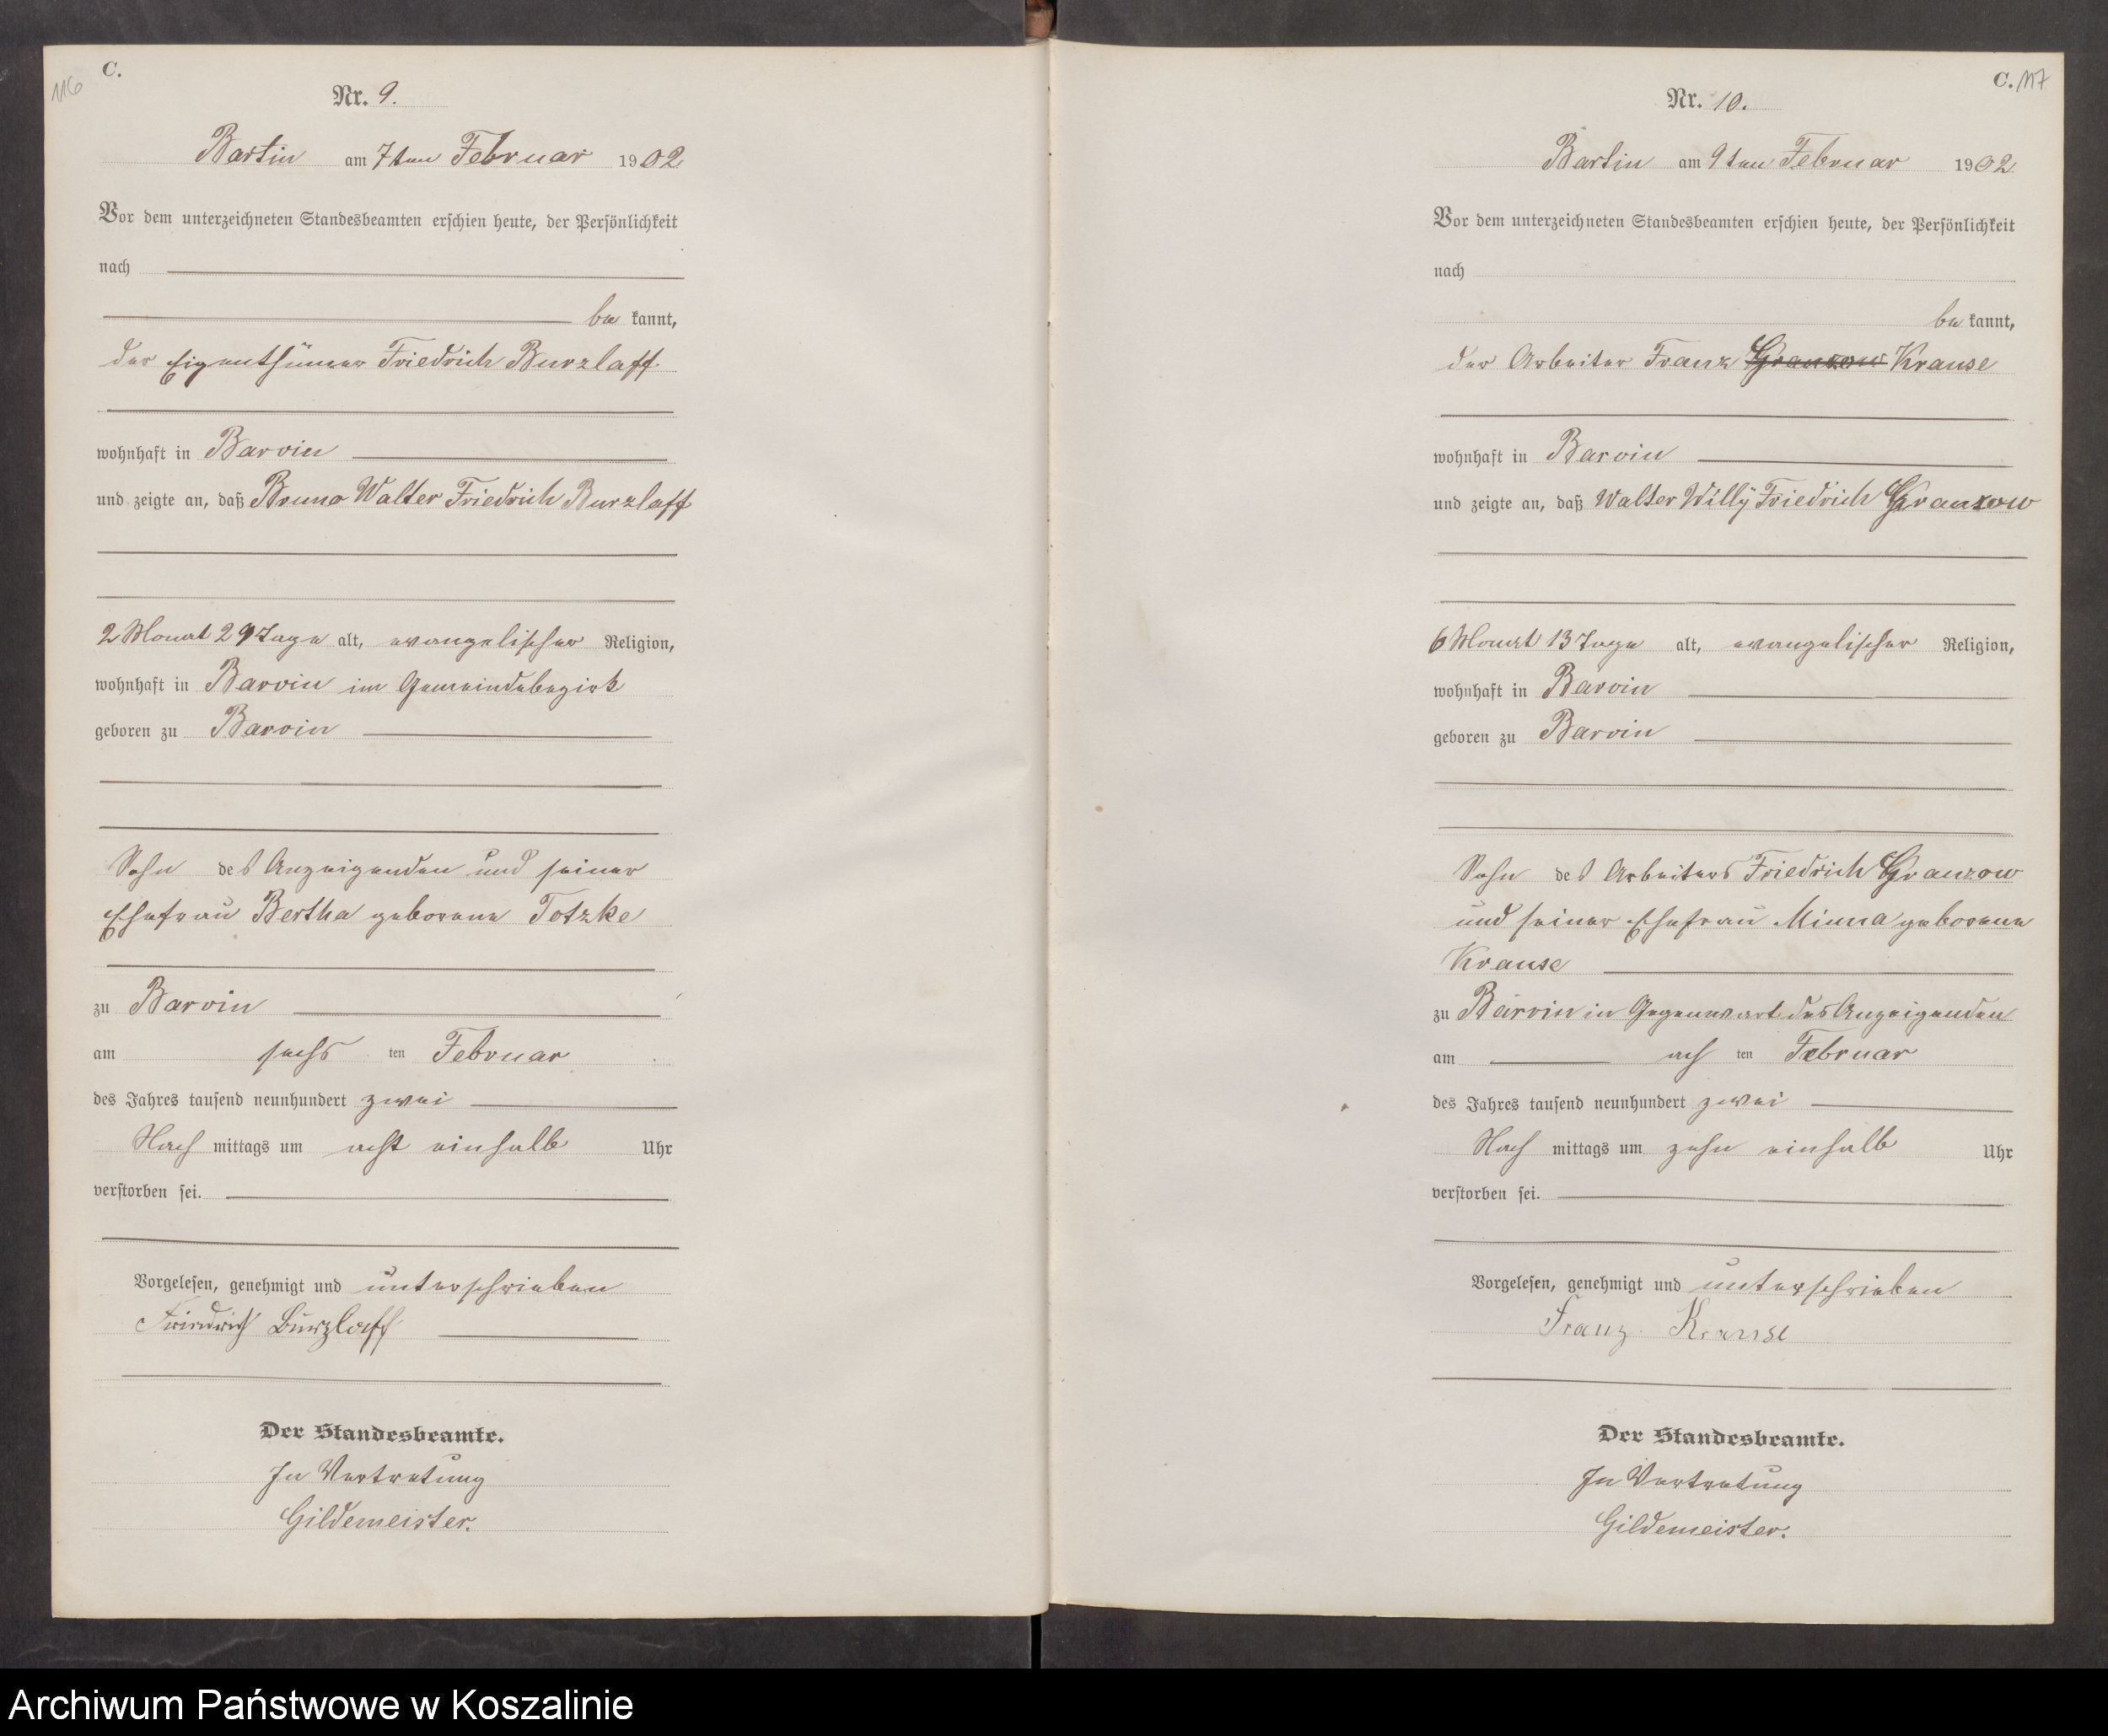 116
C.
Nr. 9.
Bartin am 7ten Februar 1902
Vor dem unterzeichneten Standesbeamten erschien heute, der Persönlichkeit
nach
be kannt,
der Eigenthümer Friedrich Burzlaff
wohnhaft in Barvin
und zeigte an, daß Bruno Walter Friedrich Burzlaff
2 Monat 29 Tage alt, evangelischer Religion,
wohnhaft in Barvin im Gemeindebezirk
geboren zu Barvin
Sohn des Anzeigenden und seiner
Ehefrau Bertha geborene Totzke
zu Barvin
am sechs ten Februar
des Jahres tausend neunhundert zwei
Nach mittags um acht einhalb Uhr
verstorben sei.
Vorgelesen, genehmigt und unterschrieben
Friedrich Burzlaff
Der Standesbeamte.
In Vertretung
Gildemeister.
C. 117
Nr. 10.
Bartin am 9ten Februar 1902
Vor dem unterzeichneten Standesbeamten erschien heute, der Persönlichkeit
nach
be kannt,
der Arbeiter Franz Granzow Krause
wohnhaft in Barvin
und zeigte an, daß Walter Willy Friedrich Granzow
6 Monat 13 Tage alt, evangelischer Religion,
wohnhaft in Barvin
geboren zu Barvin
Sohn des Arbeiters Friedrich Granzow
und seiner Ehefrau Minna geborene
Krause
zu Barvin in Gegenwart des Anzeigenden
am ach ten Februar
des Jahres tausend neunhundert zwei
Nach mittags um zehn einhalb Uhr
verstorben sei.
Vorgelesen, genehmigt und unterschrieben
Franz Krause
Der Standesbeamte.
In Vertretung
Gildemeister.
Archiwum Państwowe w Koszalinie